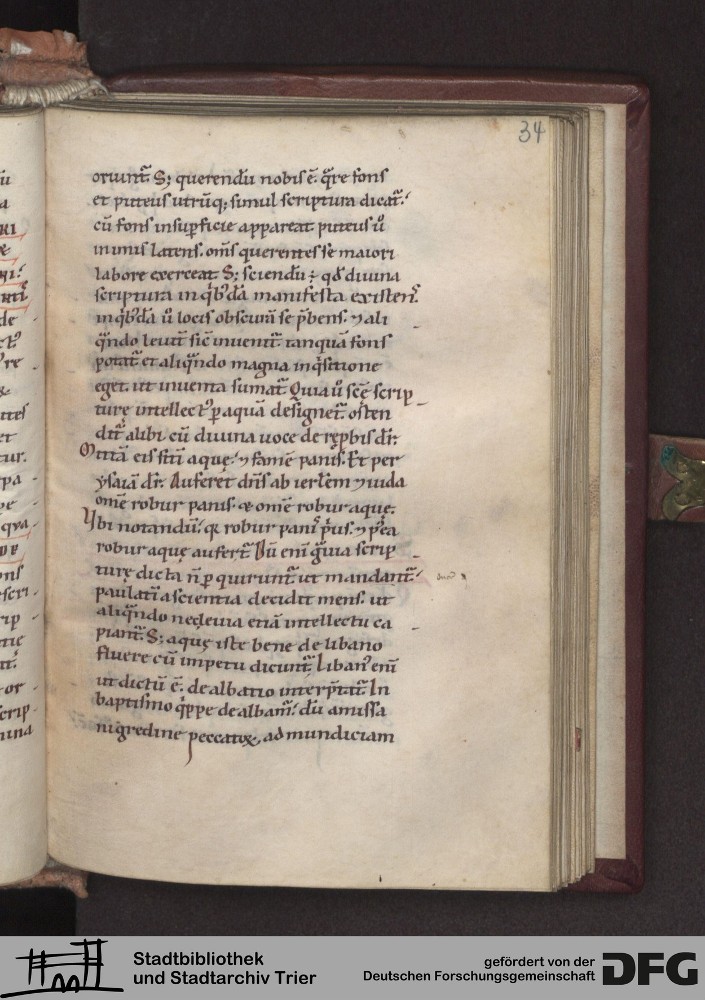 34
oriunt᷑. S; querendū nobis ē. q̄re fons
et puteus utrūq; simul scriptura dicat᷑.
cū fons insuꝑficie appareat puteus ů
in imis latens. om̄s querentes se maiori
labore exerceat. S; sciendū ÷ qđ diuina
scriptura in q̇bꝰdā manifesta existenˢ.
in q̇bꝰdā ů locis obscurā se p̄bens. ⁊ ali
q̄ndo leuit̄ sic̄ inuenit᷑. tanquā fons
potat᷑ et aliq̄ndo magna inq̇sitione
eget. ut inuenta sumat᷑. Quia ů sc̄ę scrip
turę intellectꝰ ꝑ aquā designet᷑. osten
dit᷑ alibi cū diuina uoce de rep̱bis dr̄.
Mittā eis sitī aquę. ⁊ famē panis. Et per
ẏsaiā dr̄. Auferet dn̄s ab ierlēm ⁊ iuda
omē robur panis. & omē robur aque.
Vbi notandū. q robur panis p̓us. ⁊ p̓ea
robur aquę aufert᷑. Dū eni q̄uia scrip
turę dicta n̄ ꝑquirunt᷑ ut mandant᷑.
paulatī a scientia decidit mens. ut
aliq̄ndo nec leuia etiā intellectu ca
piant᷑. S; aquę iste bene de libano
fluere cū impetu dicunt᷑. Libanꝰ enī
ut dictū ē. dealbatio interp̄tat᷑. In
baptismo q̇ppe dealbam᷑. dū amissa
nigredine peccatoꝝ, ad mundiciam
Stadtbibliothek
und Stadtarchiv Trier
gefördert von der
Deutschen Forschungsgemeinschaft
DFG